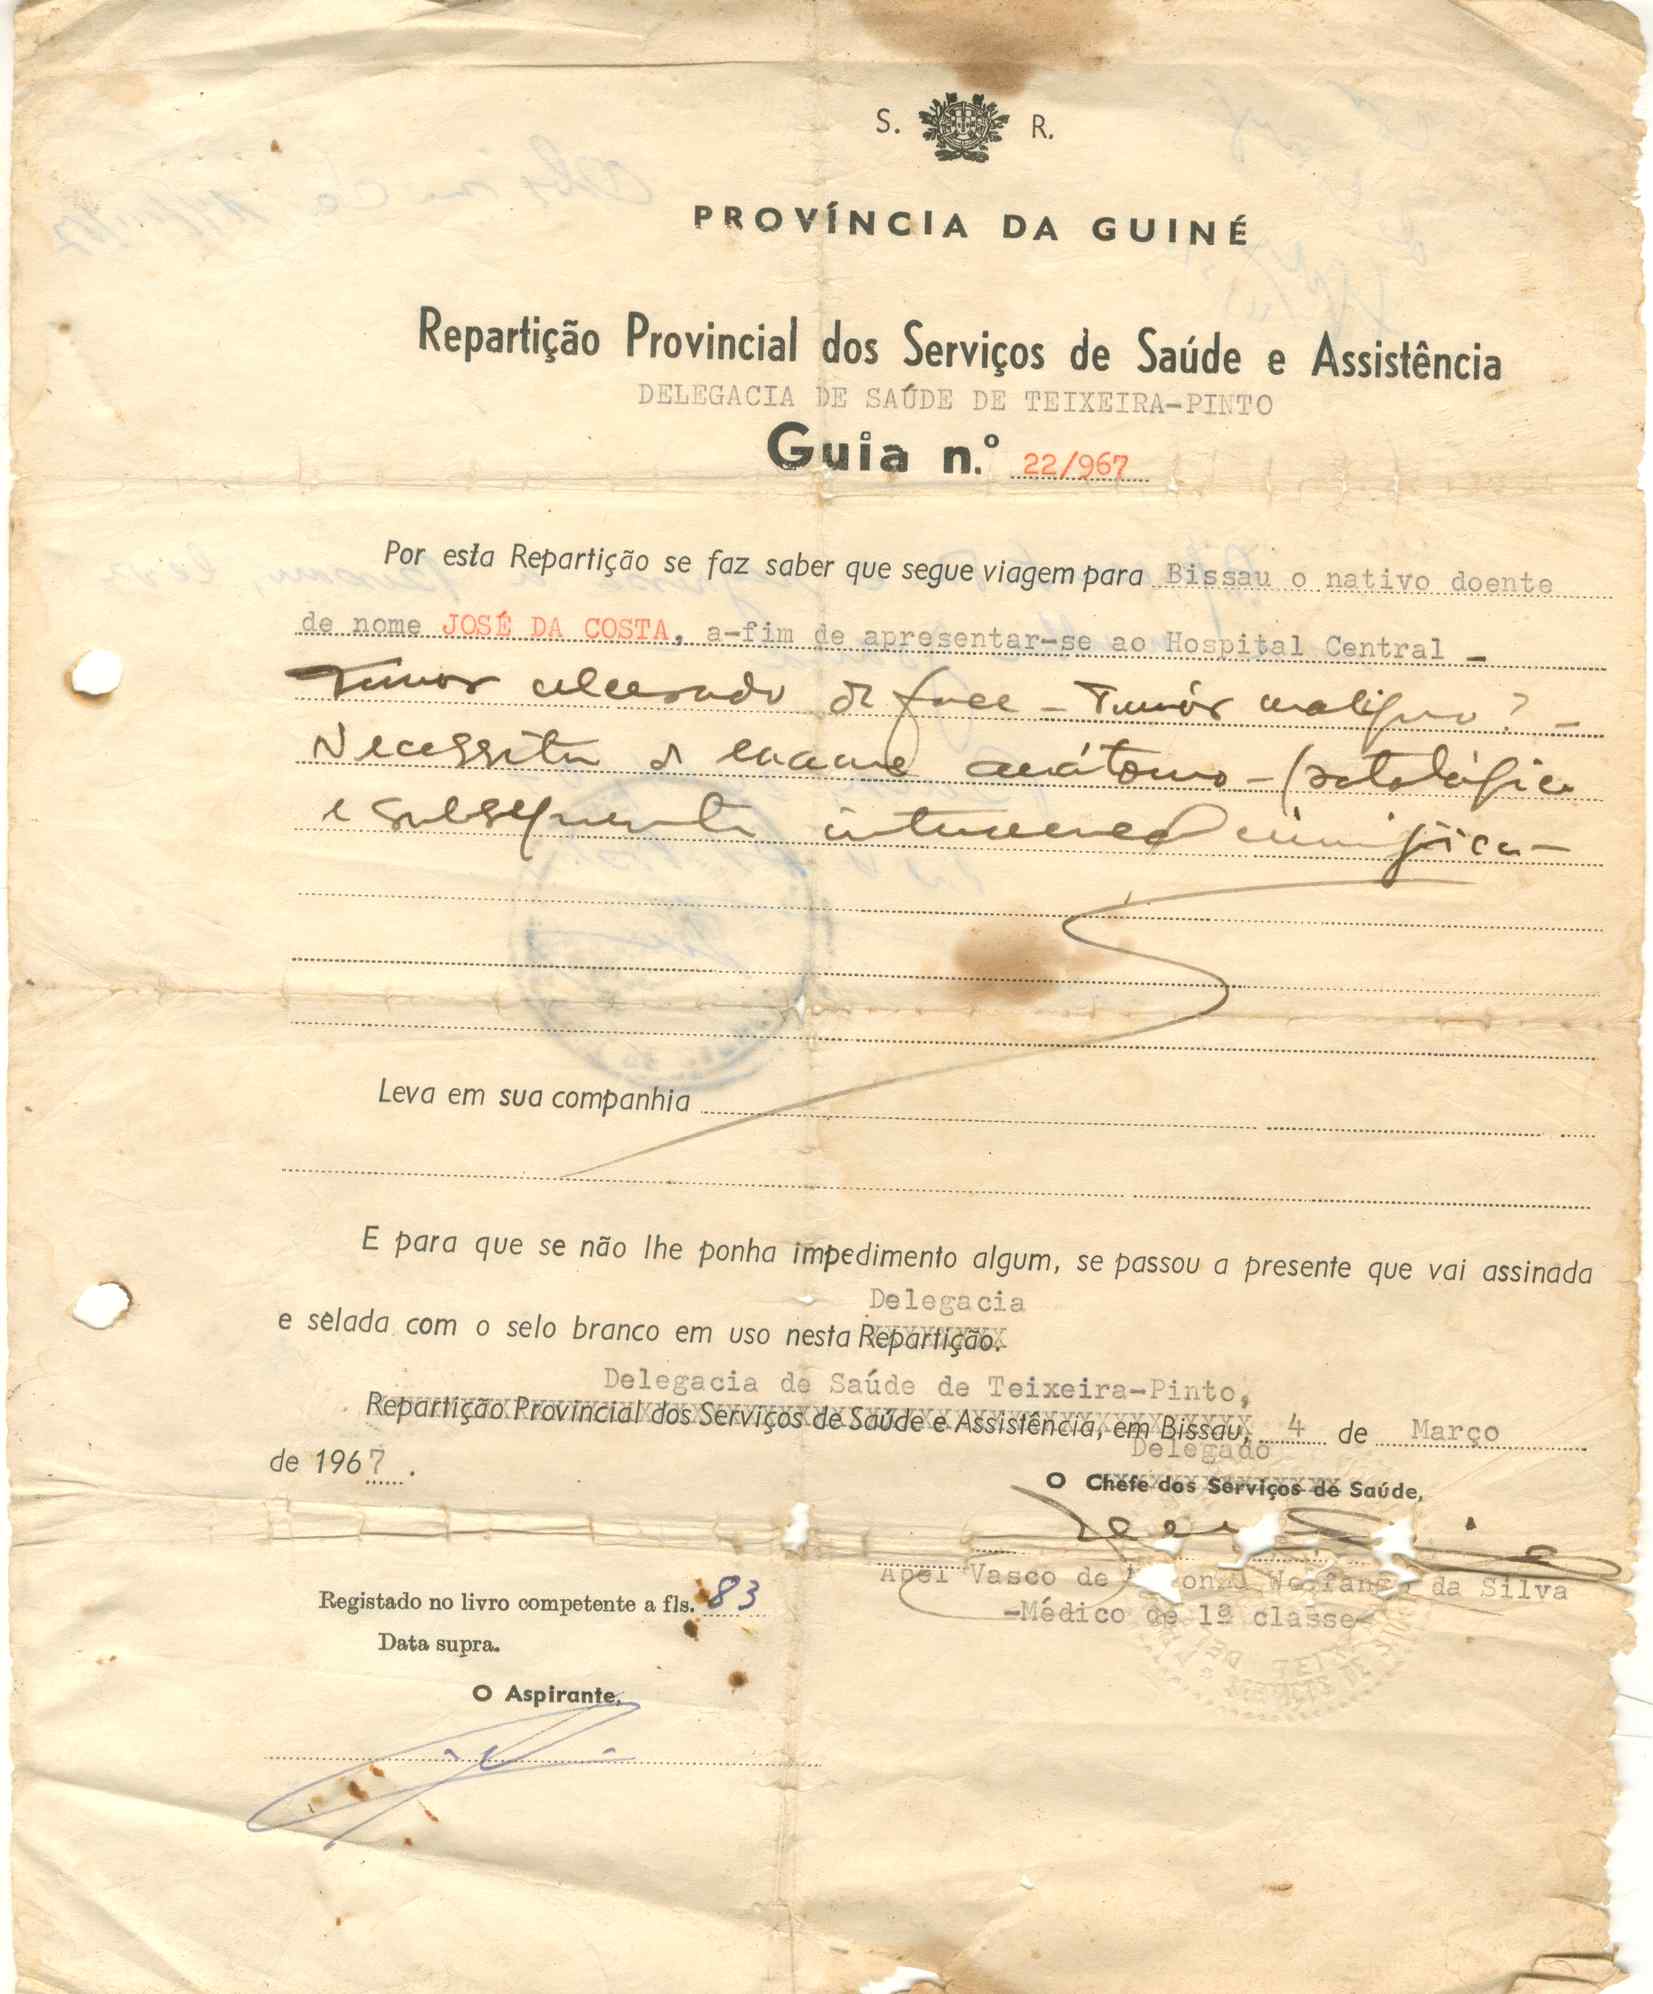 S. R.
PROVÍNCIA DA GUINÉ
Repartição Provincial dos Serviços de Saúde e Assistência
DELEGACIA DE SAÚDE DE TEIXEIRA-PINTO
Guia n.º 22/967
Por esta Repartição se faz saber que segue viagem para Bissau o nativo doente
de nome JOSÉ DA COSTA, a-fim de apresentar-se ao Hospital Central -
Tumor ulcerado de face - Tumór maligno? -
Necessita de exame anátomo-patológico
e subsequente intervenção cirúrgica -
Leva em sua companhia
E para que se não lhe ponha impedimento algum, se passou a presente que vai assinada
Delegacia
e selada com o selo branco em uso nesta Repartição.
Delegacia de Saúde de Teixeira-Pinto,
Repartição Provincial dos Serviços de Saúde e Assistência, em Bissau, 4 de Março
de 1967.
Delegado
O Chefe dos Serviços de Saúde,
Abel Vasco de da Silva
-Médico de 1ª classe-
Registado no livro competente a fls. 83
Data supra.
O Aspirante,